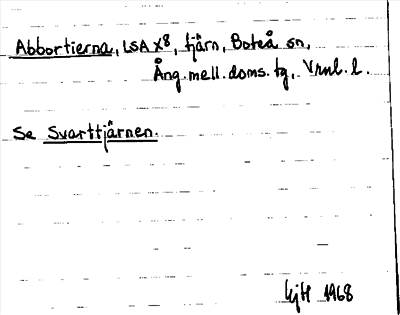 Abbortierna, LSA X8, tjärn, Boteå sn,
Ång. mell. doms. tg, Vrnl. l.
Se Svarttjärnen.
1968